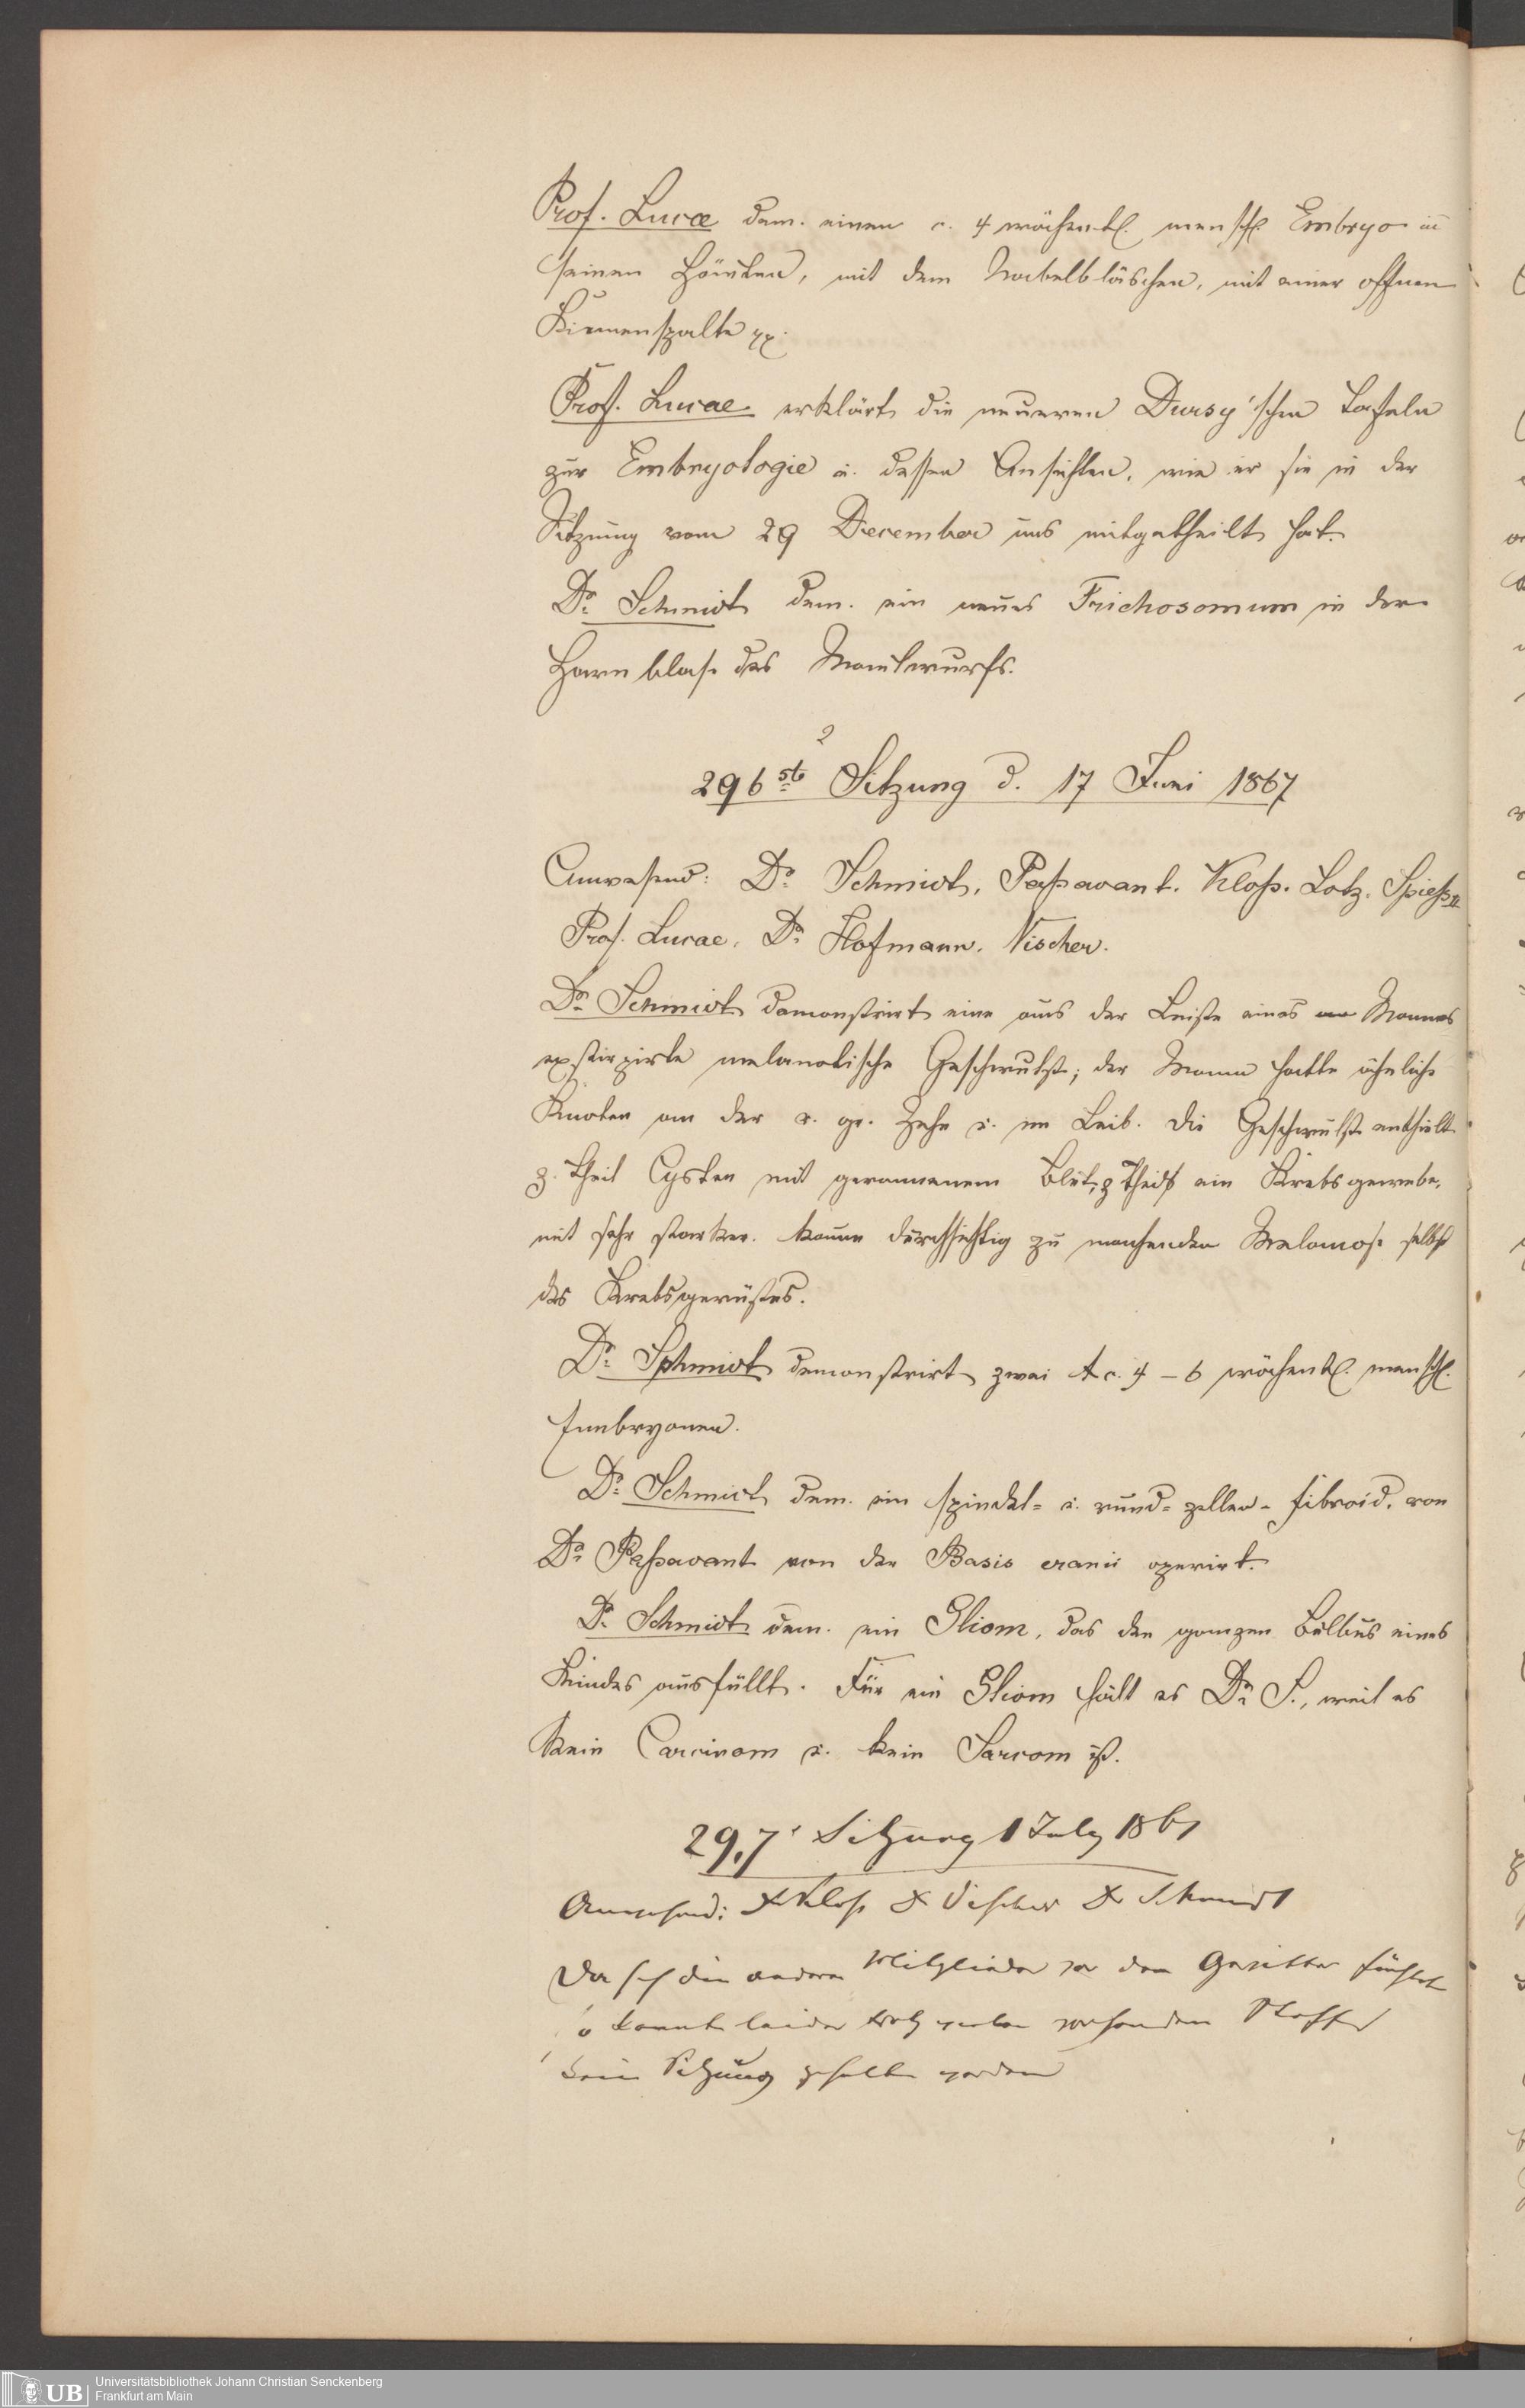 Prof. Lucae dem. einen c. 4 wöchentl. menschl. Embryo in
seinen Häuten, mit dem Nabelbläschen, mit einer offnen
Kiemenspalte pp.
Prof. Lucae erklärt die neueren Dursy'schen Tafeln
zur Embryologie u. dessen Ansichten, wie er sie in der
Sitzung vom 29 December uns mitgetheilt hat.
Dr. Schmidt dem. ein neues Trichosomum in der
Harnblase des Maulwurfs.
2
296ste Sitzung d. 17 Juni 1867
Anwesend: Dr. Schmidt, Passavant. Kloß. Lotz. Spieß II
Prof. Lucae. Dr. Hofmann. Vischer.
Dr. Schmidt demonstrirt eine aus der Leiste eines Mannes
exstirpirte melanotische Geschwulst; der Mann hatte ähnliche
Knoten an der r. gr. Zehe u. im Leib. Die Geschwulst enthielt
z. Theil Cysten mit geronnenem Blut, z Theil ein Krebsgewebe,
mit sehr starker, kaum durchsichtig zu machenden Melanose selbst
des Krebsgerüstes.
Dr. Schmidt demonstrirt zwei c. 4 – 6 wöchentl. menschl.
Embryonen.
Dr. Schmidt dem. ein spindel- u. rund-zellen-fibroid, von
Dr. Passavant von der Basis cranii operirt.
Dr. Schmidt dem. ein Gliom, das den ganzen Bulbus eines
Kindes ausfüllt. Für ein Gliom hält es Dr. S., weil es
kein Carcinom u. kein Sarcom ist.
297. Sitzung 1 July 1867
Anwesend: Dr Kloß Dr Vischer Dr Schmidt
Da sich die anderen Mitglieder vor dem Gewitter fürchten
so konnte leider trotz vorhandenen Stoffes
keine Sitzung gehalten werden
Universitätsbibliothek Johann Christian Senckenberg
UB Frankfurt am Main